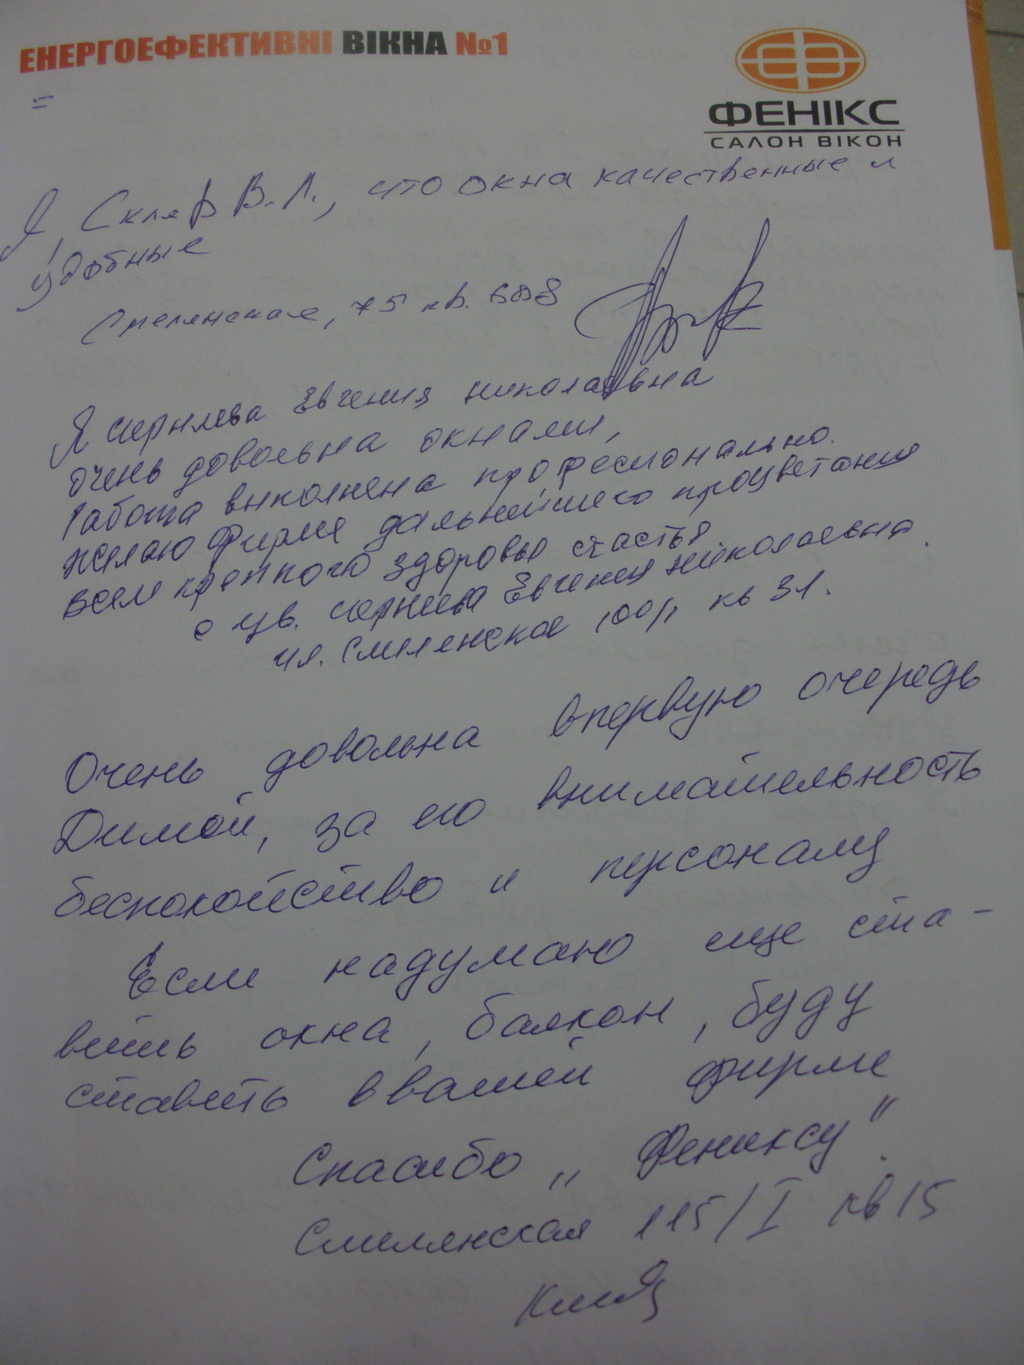 ЕНЕРГОЕФЕКТИВНІ ВІКНА №1
ФЕНІКС
САЛОН ВІКОН
Я, Скляр В.Л., что окна качественные и
удобные
Смелянская, 75 кв.
Я Евгения николаевна
очень довольна окнами,
Работа выполнена професионально.
желаю фирме дальнейшего процветания
всем крепкого здоровья счастья
с ув. Евгения николаевна.
ул. Смелянская 100/1 кв 31.
Очень довольна впервую очередь
Димой, за его внимательность
беспокойство и персоналу
Если надумаю еще ста-
вить окна, балкон, буду
ставить в вашей фирме
Спасибо „Фениксу".
Смелянская 115/I кв 15